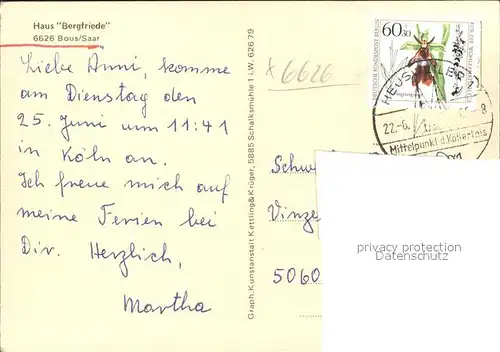 Haus "Bergfriede"
6626 Bous/Saar
Liebe Anni, komme
am Dienstag den
25. Juni um 11:41
in Köln an.
Ich freue mich auf
meine Ferien bei
Dir. Herzlich,
Martha
Graph. Kunstanstalt Kettling & Krüger, 5885 Schalksmühle 1 i.W. 626 79
x 6626
60+30
DEUTSCHE BUNDESPOST BERLIN
22.-6.
-8
Mittelpunkt d. Köllertals
Schw
Vinze
5060
privacy protection
Datenschutz